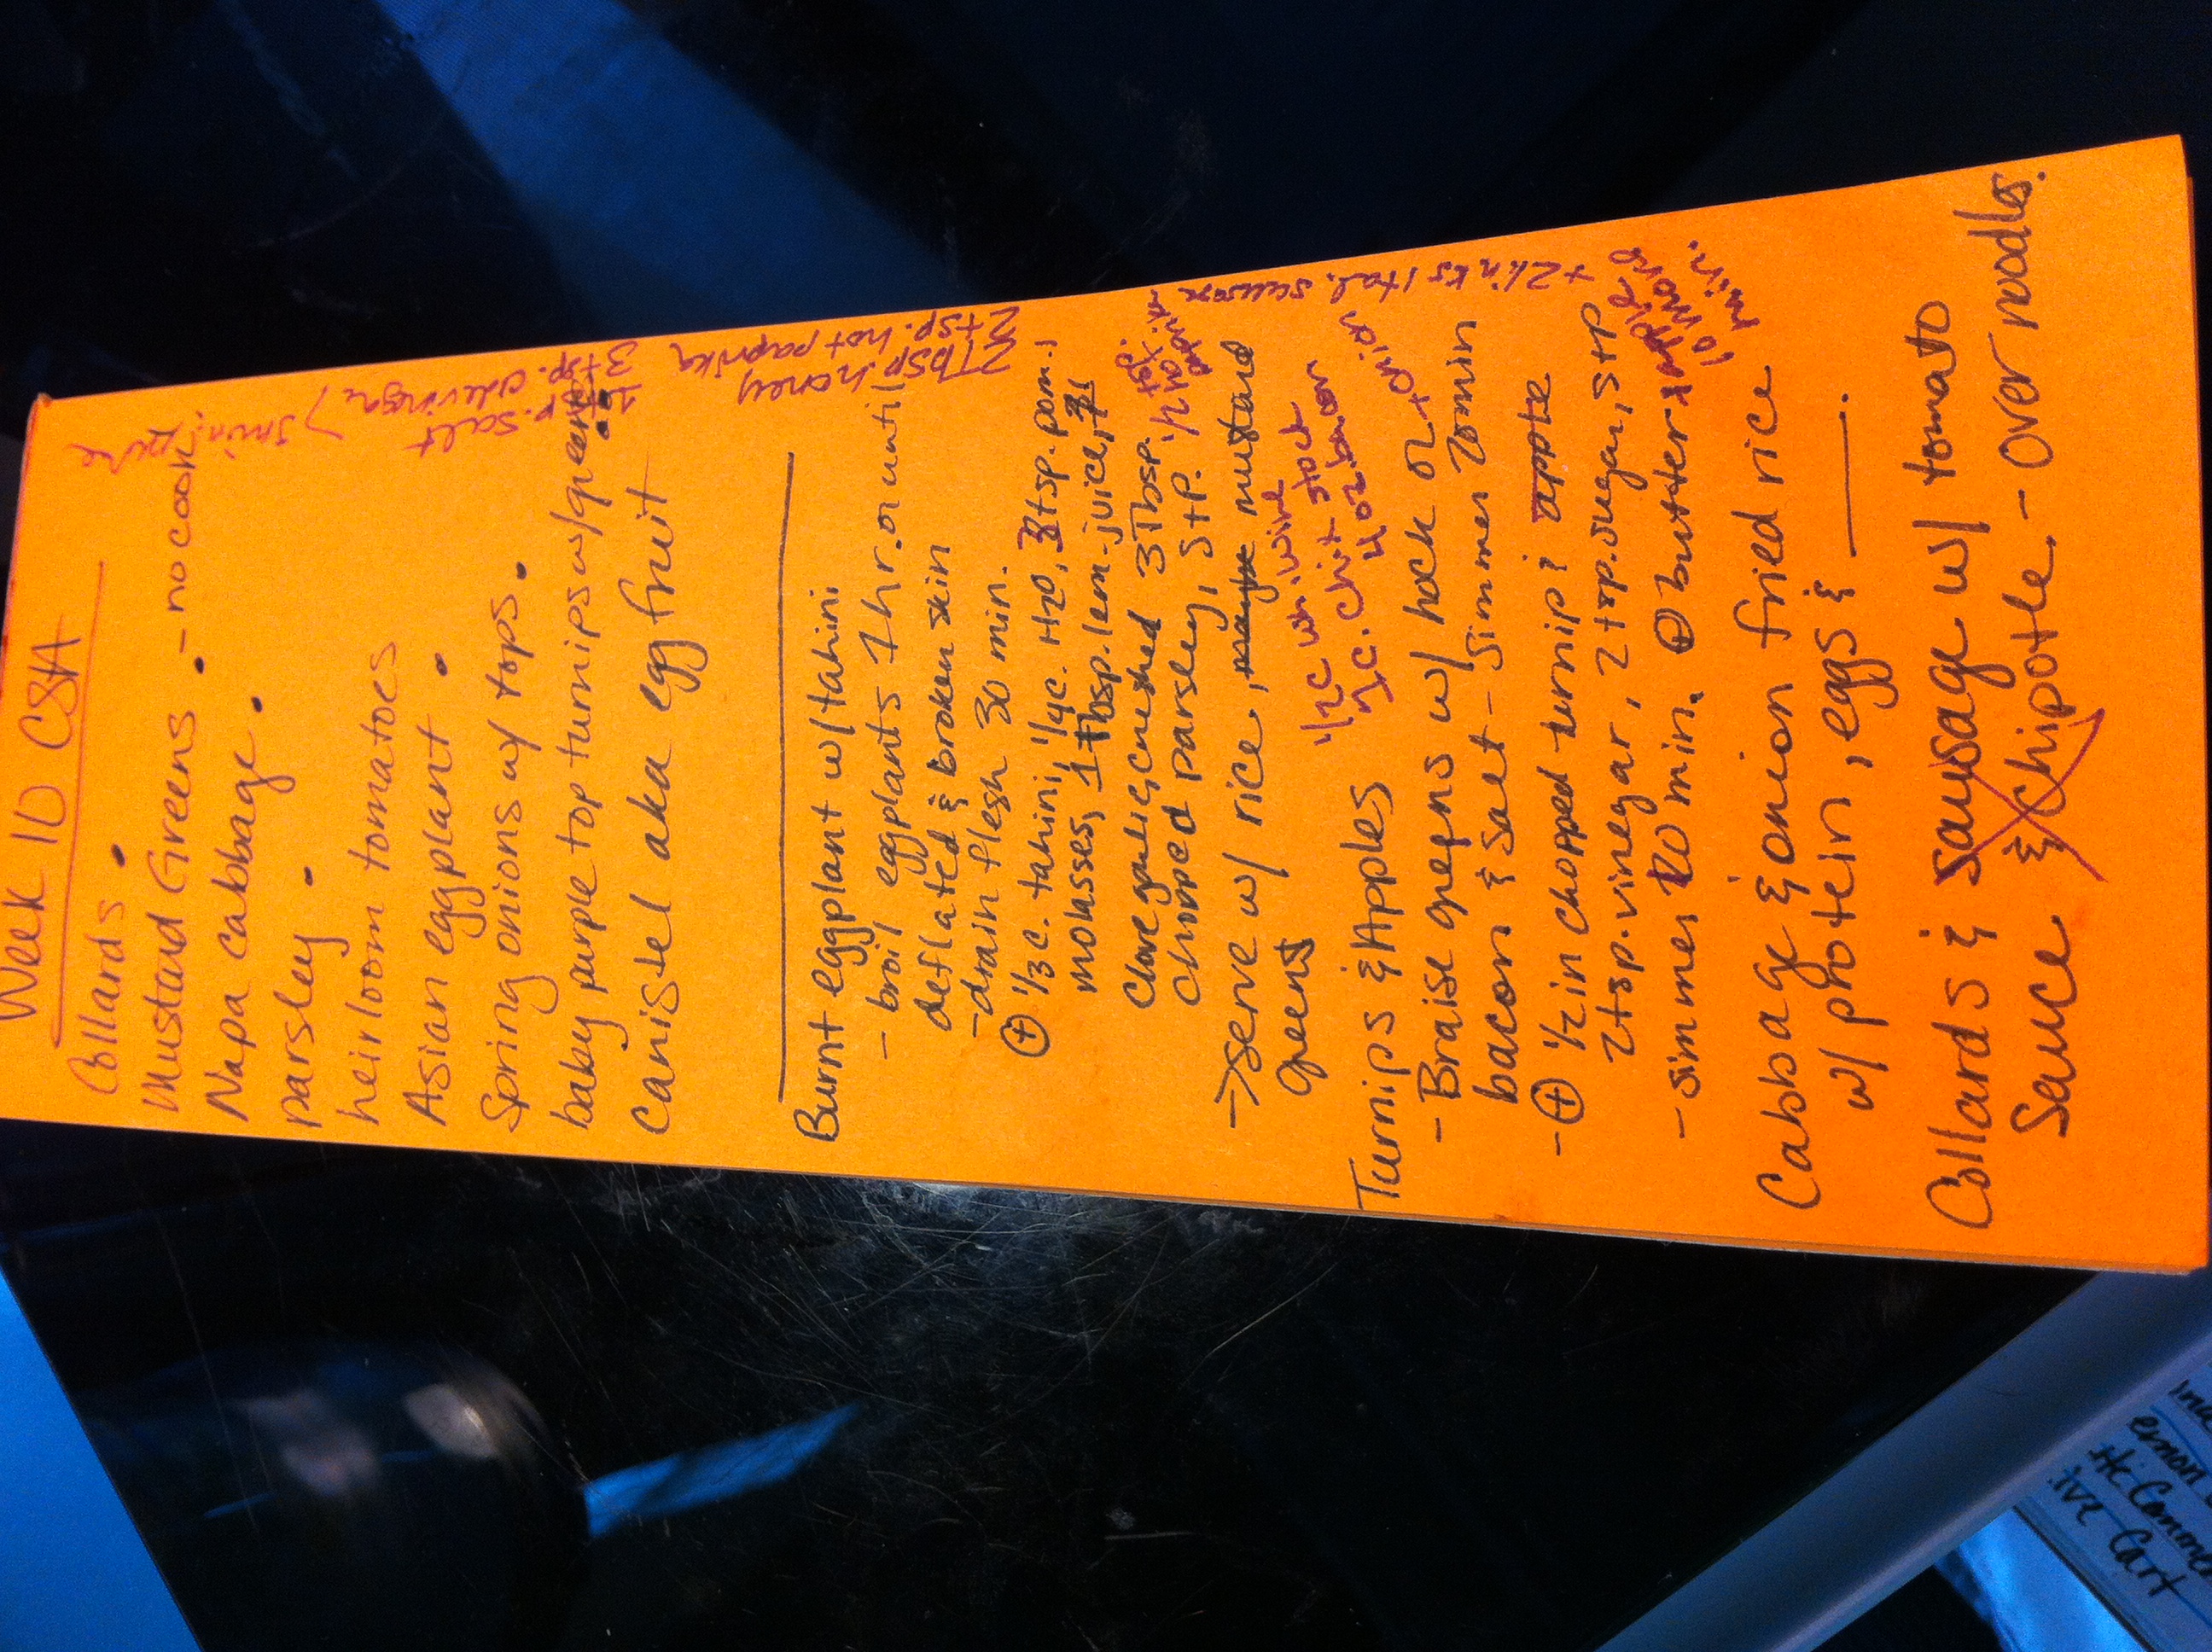 Week 10 CSA
Collards •
Mustard Greens • - no cook!
Napa cabbage •
parsley •
heirloom tomatoes
Asian eggplant •
Spring onions w/ tops •
baby purple top turnips w/greens •
Canistel aka egg fruit
Burnt eggplant w/tahini
- broil eggplants 1 hr. or until
deflated & broken skin
- drain flesh 30 min.
⊕ 1/3 c. tahini, 1/4 c. H2O, 3 tsp. pom.
molasses, 1 tbsp. lem. juice, 1
clove garlic, crushed 3 Tbsp.
chopped parsley, S+P.
→ serve w/ rice, mustard
greens
Turnips & Apples
- Braise greens w/ hock or
bacon & salt - simmer 20 min
- ⊕ 1/2 in chopped turnip & apple
2 tsp. vinegar, 2 tsp. sugar, S+P
- simmer 20 min. ⊕ butter
Cabbage & onion fried rice
w/ protein, eggs & ___.
Collards & sausage w/ tomato
Sauce & Chipotle. - over noodles.
1/2 c wh. wine
1 c. chix stock
4 oz. bacon
+ onion
+ 2 links Ital. sausage
+ apple
10 more
min.
1/2 tsp.
hot
paprika
2 Tbsp. honey
2 tsp. hot paprika
1 tsp. salt
3 tsp. cider vinegar
5 min.
ive Cart